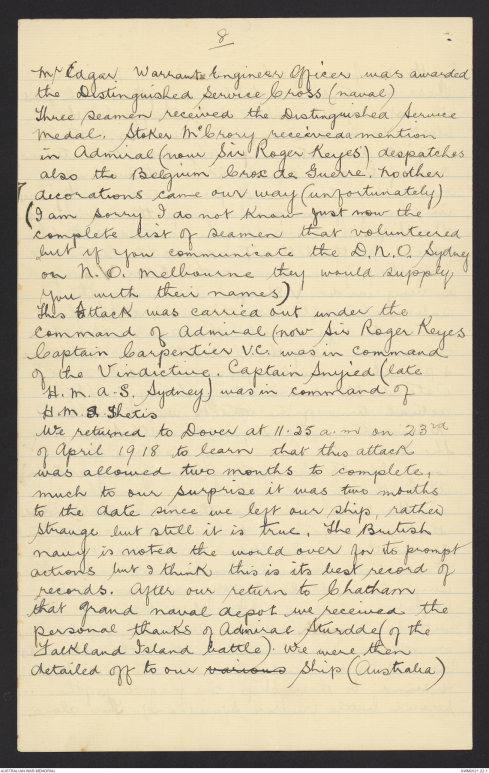 8
Mr Edgar. Warrant Engineer Officer was awarded
the Distinguished Service Cross (naval)
Three seamen received the Distinguished Service
medal. Stoker McCrory received a mention
in Admiral (now Sir Roger Keyes) despatches
also the Belgium Crox de Guerre. No other
decorations came our way (unfortunately)
(I am sorry I do not know just now the
complete list of seamen that volunteered
but if you communicate the D.N.O. Sydney
on N.O. Melbourne they would supply
you with their names)
This attack was carried out under the
command of Admiral (now Sir Roger Keyes
Captain Carpentier V.C. was in command
of the Vindictive. Captain (late
H.M.A.S. Sydney) was in command of
H.M.S. Thetis
We returned to Dover at 11.25 a.m on 23rd
of April 1918 to learn that this attack
was allowed two months to complete,
much to our surprise it was two months
to the date since we left our ship, rather
strange but still it is true. The British
navy is noted the would over for its prompt
actions but I think this is its best record of
records. After our return to Chatham
that grand naval depot we received the
personal thanks of Admiral Sturdde (of the
Falkland Island battle). We were then
detailed off to our various ship (Australia)
AUSTRALIAN WAR MEMORIAL